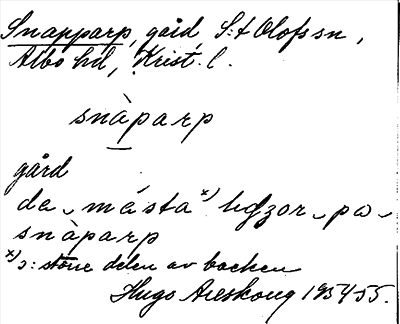 Snapparp, gård, S:t Olofs sn,
Albo hd, Krist. l.
snàparp
gård
de, mésta x) legzor, pa,
snàparp
x) ɔ: större delen av backen
Hugo Areskoug 1954-55.